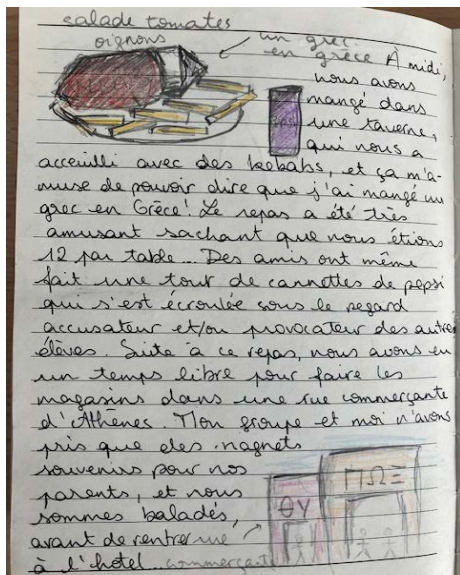 salade tomates
oignons
un grec
en grèce
À midi,
nous avons
mangé dans
une taverne,
qui nous a
acceuilli avec des kebabs, et ça m'a-
muse de pouvoir dire que j'ai mangé un
grec en Grèce! Le repas a été très
amusant sachant que nous étions
12 par table... Des amis ont même
fait une tour de cannettes de pepsi
qui s'est écroulée sous le regard
accusateur et/ou provocateur des autres
élèves. Suite à ce repas, nous avons eu
un temps libre pour faire les
magasins dans une rue commerçante
d'Athènes. Mon groupe et moi n'avons
pris que des magnets
souvenirs pour nos
parents, et nous
sommes baladés,
avant de rentrer
à l'hotel.
rue
commerçante
ΘY
ΠΩΞ